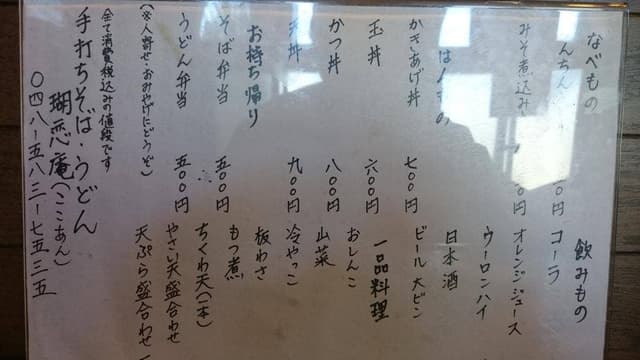 なべもの
みそ煮込み
ごはんもの
かきあげ丼 七〇〇円
玉丼 六〇〇円
かつ丼 八〇〇円
天丼 九〇〇円
お持ち帰り
そば弁当 五〇〇円
うどん弁当 五〇〇円
(※人寄せ・おみやげにどうぞ)
全て消費税込みの値段です
手打ちそば・うどん
瑚恋庵(ここあん)
〇四八-五八三-七五三五
飲みもの
コーラ
オレンジジュース
ウーロンハイ
日本酒
ビール 大ビン
一品料理
おしんこ
山菜
冷やっこ
板わさ
もつ煮
ちくわ天(一本)
やさい天盛合わせ
天ぷら盛合わせ